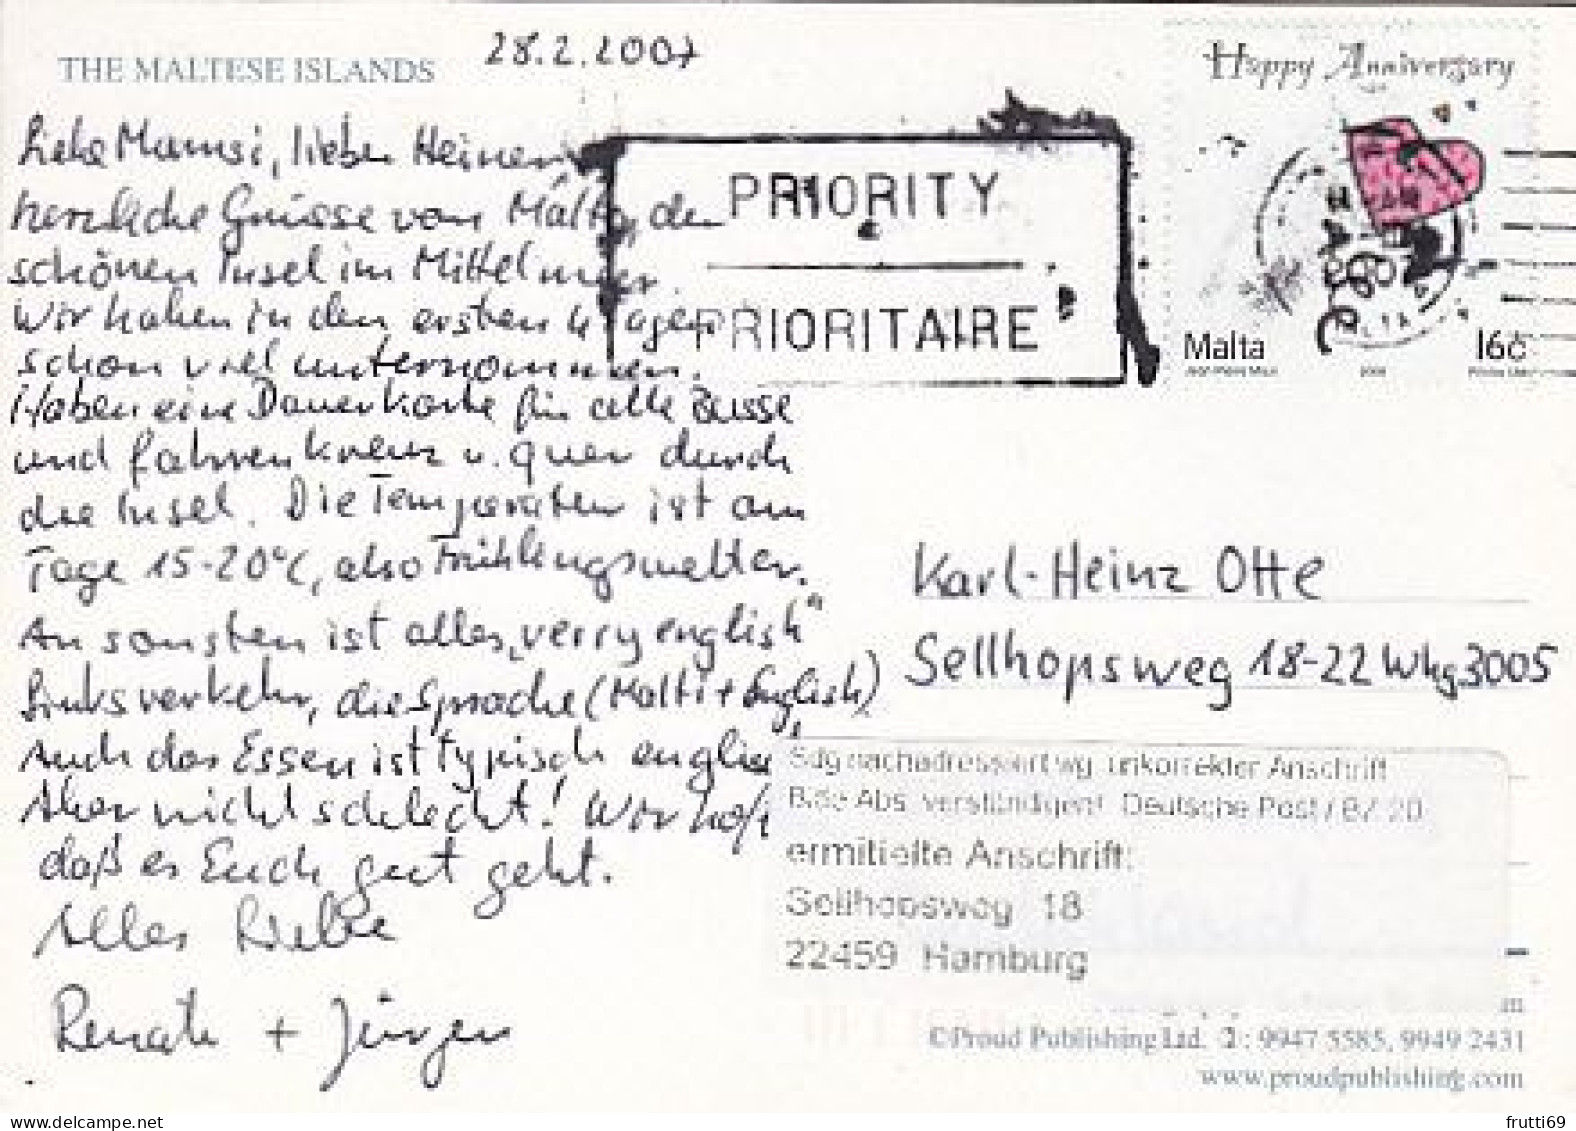 THE MALTESE ISLANDS
28.2.2007
Liebe Mamsi, lieber Heiner
herzliche Grüsse von Malta, der
schönen Insel im Mittelmeer.
Wir haben in den ersten 4 Tagen
schon viel unternommen.
Haben eine Dauerkarte für alle Busse
und fahren kreuz u. quer durch
die Insel. Die Temperaturen ist am
Tage 15-20°C, also Frühlingswetter.
Ansonsten ist alles „verry english“
Linksverkehr, die Sprache (Malti + English)
Auch das Essen ist typisch englis
Aber nicht schlecht! Wir hoff
daß es Euch gut geht.
Alles Liebe
Renate + Jürgen
PRIORITY
PRIORITAIRE
Happy Anniversary
Malta 16c
Karl-Heinz Otte
Sellhopsweg 18-22 Whg 3005
Sdg nachadressiert wg. unkorrekter Anschrift
Bitte Abs. verständigen! Deutsche Post / BZ 20
ermittelte Anschrift:
Sellhopsweg 18
22459 Hamburg
©Proud Publishing Ltd. : 9947 5585, 9949 2431
www.proudpublishing.com
delcampe.net
frutti69